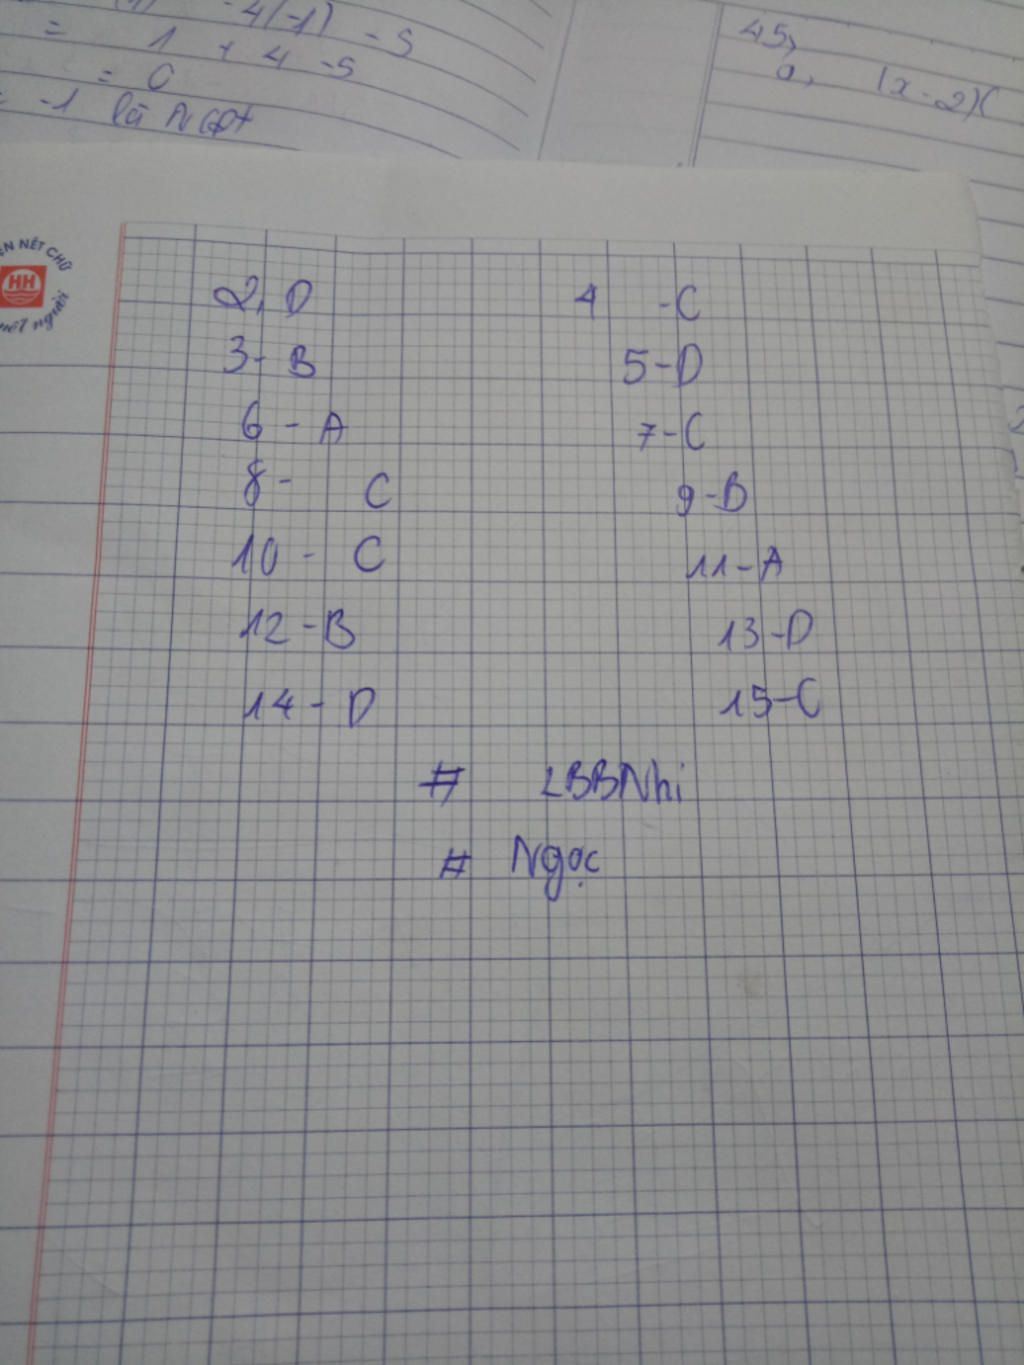 -4(-1) -5
= 1 + 4 -5
= 0
= -1 là N
45,
a, (x-2)(
NÉT CHỮ
HH
nết người
2, D 4 -C
3- B 5-D
6 - A 7-C
8- C 9-B
10 - C 11-A
12-B 13-D
14- D 15-C
# LBBNhi
# Ngọc